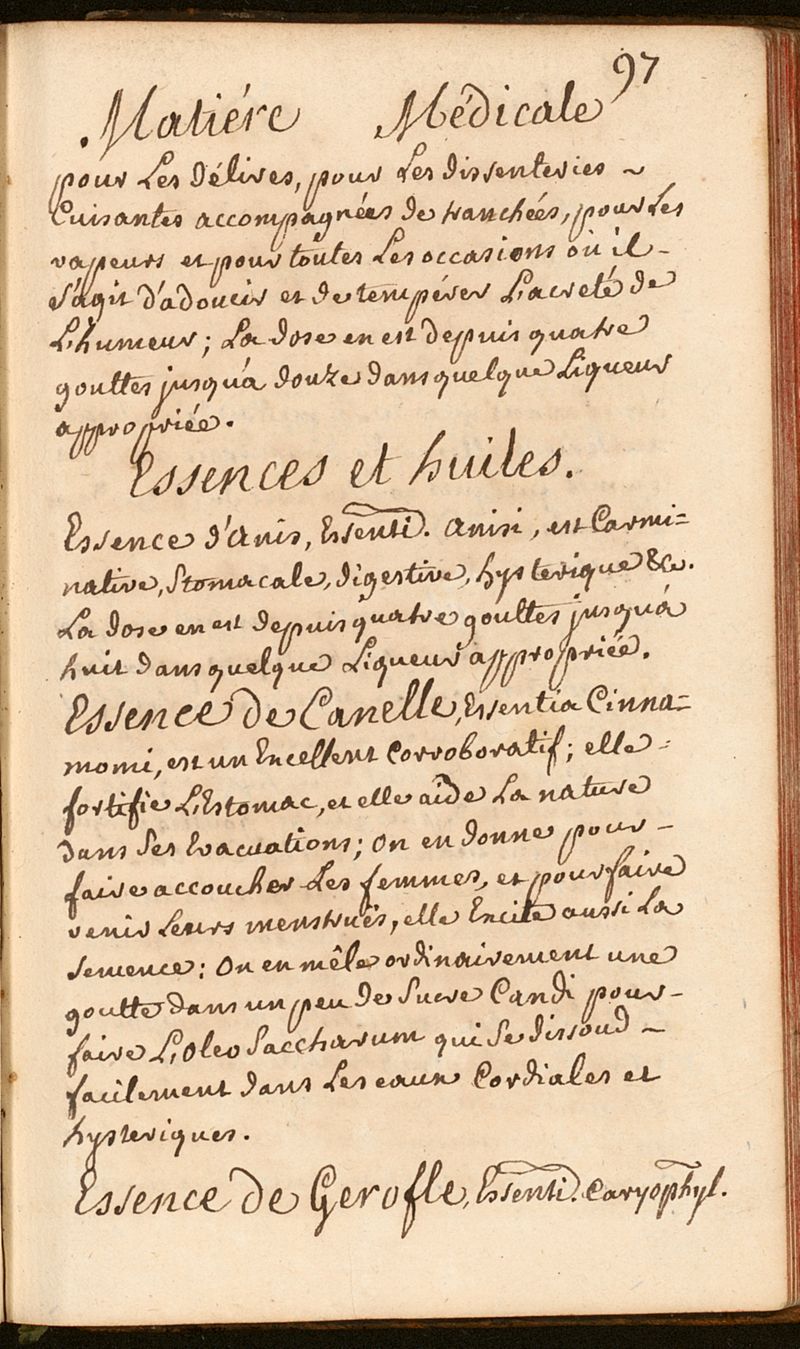 97
Matiére Médicale
pour Les délires, pour Les dissenteries ~
Cuisantes accompagnées de tranchées, pour Les
vapeurs et pour toutes Les occasions où il -
s'agit d'adoucir et de tempérer L'acreté de
L'humeur; La dose en est depuis quatre
gouttes jusqu'à douze dans quelque Liqueur
appropriée.
Essences et huiles.
Essence d'Anis, Essenti. anisi, est Carmi=
native, Stomacale, digestive, hysterique &c.
La dose en est depuis quatre gouttes jusqu'à
huit dans quelque Liqueur appropriée.
Essence de Canelle, Essentia Cinna=
momi, est un Excellent corroboratif; elle -
fortifie L'Estomac, et elle aide La nature
dans Ses Evacuations; on en donne pour -
faire accoucher Les femmes, et pour faire
venir Leurs menstruës, elle Excite aussi La
semence; On en mêle ordinairement une
goutte dans un peu de Sucre Candi pour -
faire L'Oleo Saccharum qui Se dissoud ~
facilement dans Les eaux Cordiales et
hysteriques.
Essence de Gerofle, Essenti. Caryophyl.